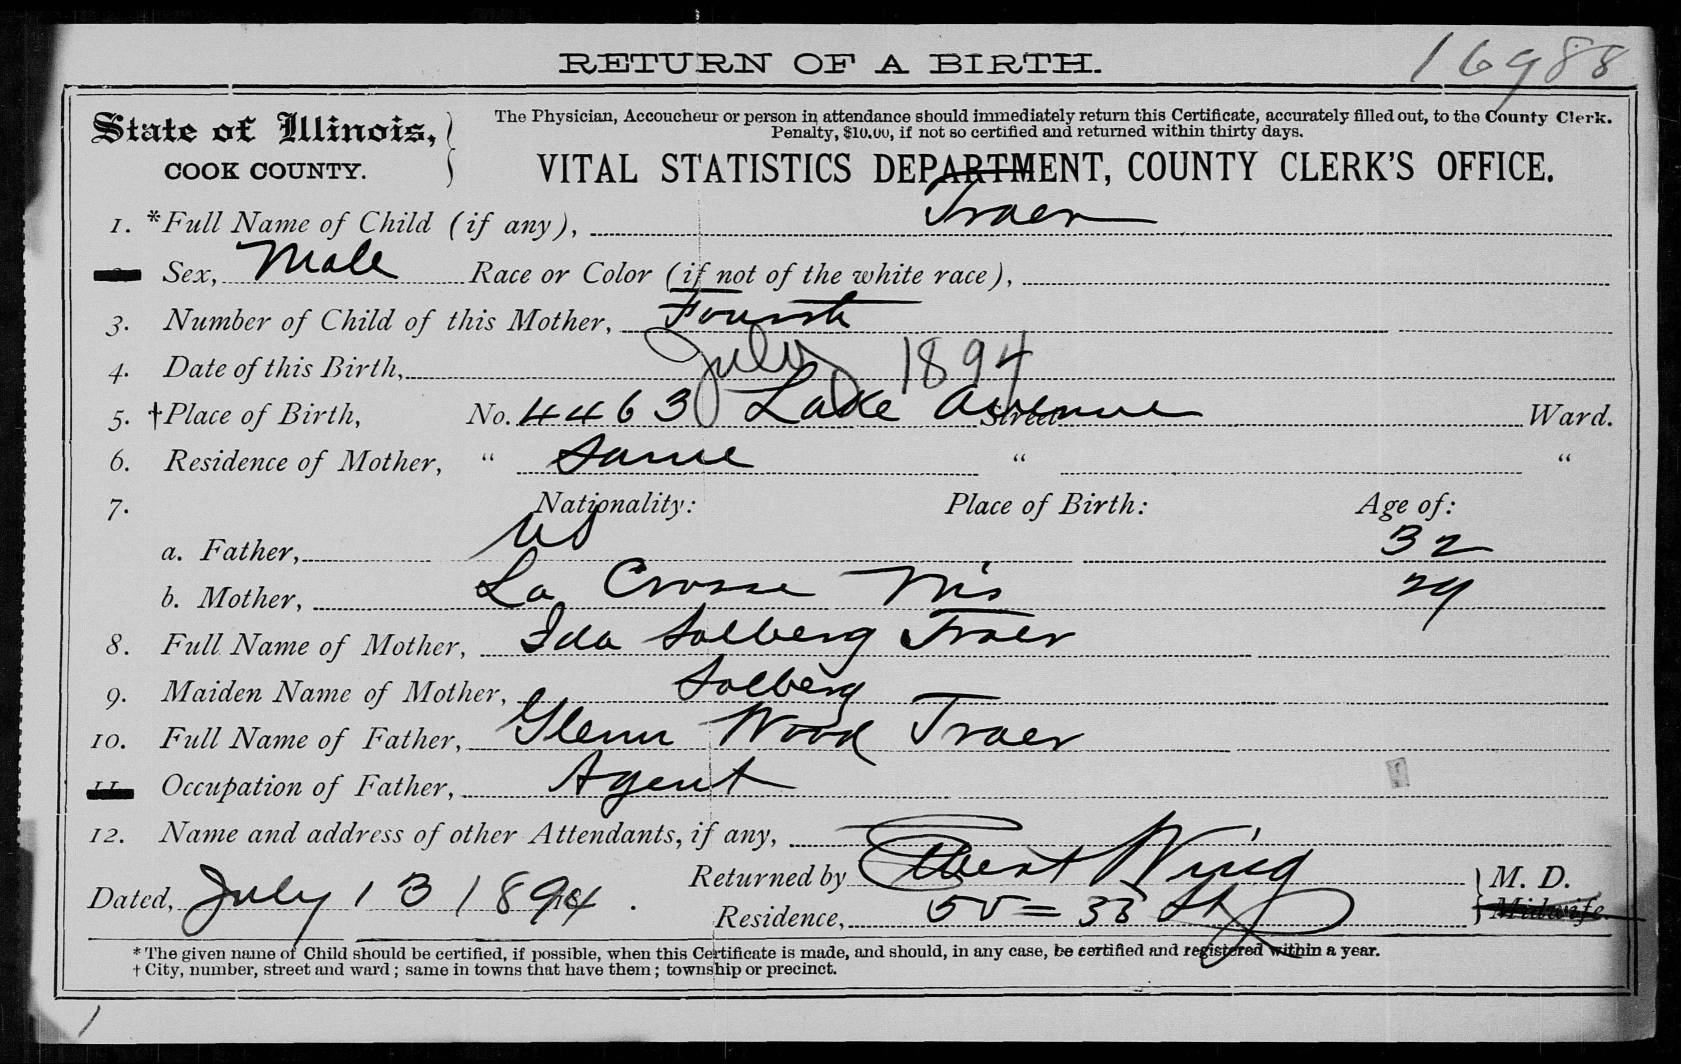 RETURN OF A BIRTH.
16988
State of Illinois,
COOK COUNTY.
The Physician, Accoucheur or person in attendance should immediately return this Certificate, accurately filled out, to the County Clerk.
Penalty, $10.00, if not so certified and returned within thirty days.
VITAL STATISTICS DEPARTMENT, COUNTY CLERK'S OFFICE.
1. *Full Name of Child (if any), Traer
Sex, Male Race or Color (if not of the white race),
3. Number of Child of this Mother, Fourth
4. Date of this Birth, July 1894
5. †Place of Birth, No. 4463 Lake Avenue Street Ward.
6. Residence of Mother, " Same " "
7. Nationality: Place of Birth: Age of:
a. Father, US 32
b. Mother, La Crosse Wis 29
8. Full Name of Mother, Ida Solberg Traer
9. Maiden Name of Mother, Solberg
10. Full Name of Father, Glenn Wood Traer
11. Occupation of Father, Agent
12. Name and address of other Attendants, if any,
Dated, July 13 1894. Returned by Elbert Wing M. D.
Residence, 50 = 33 St Midwife.
* The given name of Child should be certified, if possible, when this Certificate is made, and should, in any case, be certified and registered within a year.
† City, number, street and ward; same in towns that have them; township or precinct.